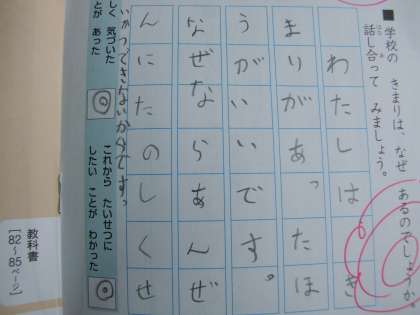 ■学校の きまりは、なぜ あるのでしょうか。
話し合って みましょう。
わたしはき
まりがあったほ
うがいいです。
なぜならあんぜ
んにたのしくせ
いかつできないからです。
しく 気づいた
とが あった
これから たいせつに
したい ことが わかった
教科書
[82〜85ページ]